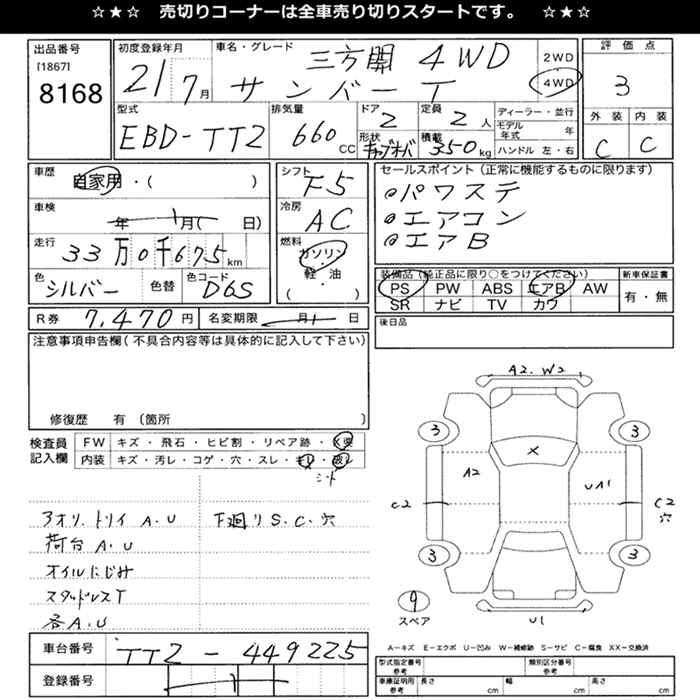 ☆★☆ 売切りコーナーは全車売り切りスタートです。 ☆★☆
出品番号
[1867]
8168
初度登録年月
21 7月
車名・グレード
三方開 4WD
サンバーT
2WD
4WD
評価点
3
外装 内装
C C
型式
EBD-TT2
排気量
660 CC
ドア
2
形状
キャブオーバ
定員
2 人
積載
350 kg
ディーラー・並行
モデル年式 年
ハンドル 左・右
車歴
自家用・( )
車検
年 月( 日)
走行
33万0千675 km
色
シルバー
色替
色コード
D6S
シフト
F5
冷房
AC
燃料
ガソリン
・
軽油
( )
セールスポイント (正常に機能するものに限ります)
パワステ
エアコン
エアB
装備品(純正品に限り○をつけてください)
PS PW ABS エアB AW
SR ナビ TV カワ
新車保証書
有・無
R券 7,470円
名変期限 月 日
後日品
注意事項申告欄(不具合内容等は具体的に記入して下さい)
修復歴 有 〔箇所 〕
検査員記入欄
FW キズ・飛石・ヒビ割・リペア跡・X要
内装 キズ・汚レ・コゲ・穴・スレ・キレ・破レ
シート
アオリ.トリイ A.U
下廻り S.C.穴
荷台 A.U
オイルにじみ
スタッドレスT
各A.U
A2. W2
3
3
X
A2
UA1
C2
C2
穴
3
3
9
スペア
U1
A-キズ E-エクボ U-凹み W-補修跡 S-サビ C-腐食 XX-交換済
車台番号 TT2-449225
登録番号
型式指定番号
参考
類別区分番号
参考
車庫証明用
参考
長さ cm
幅 cm
高さ cm